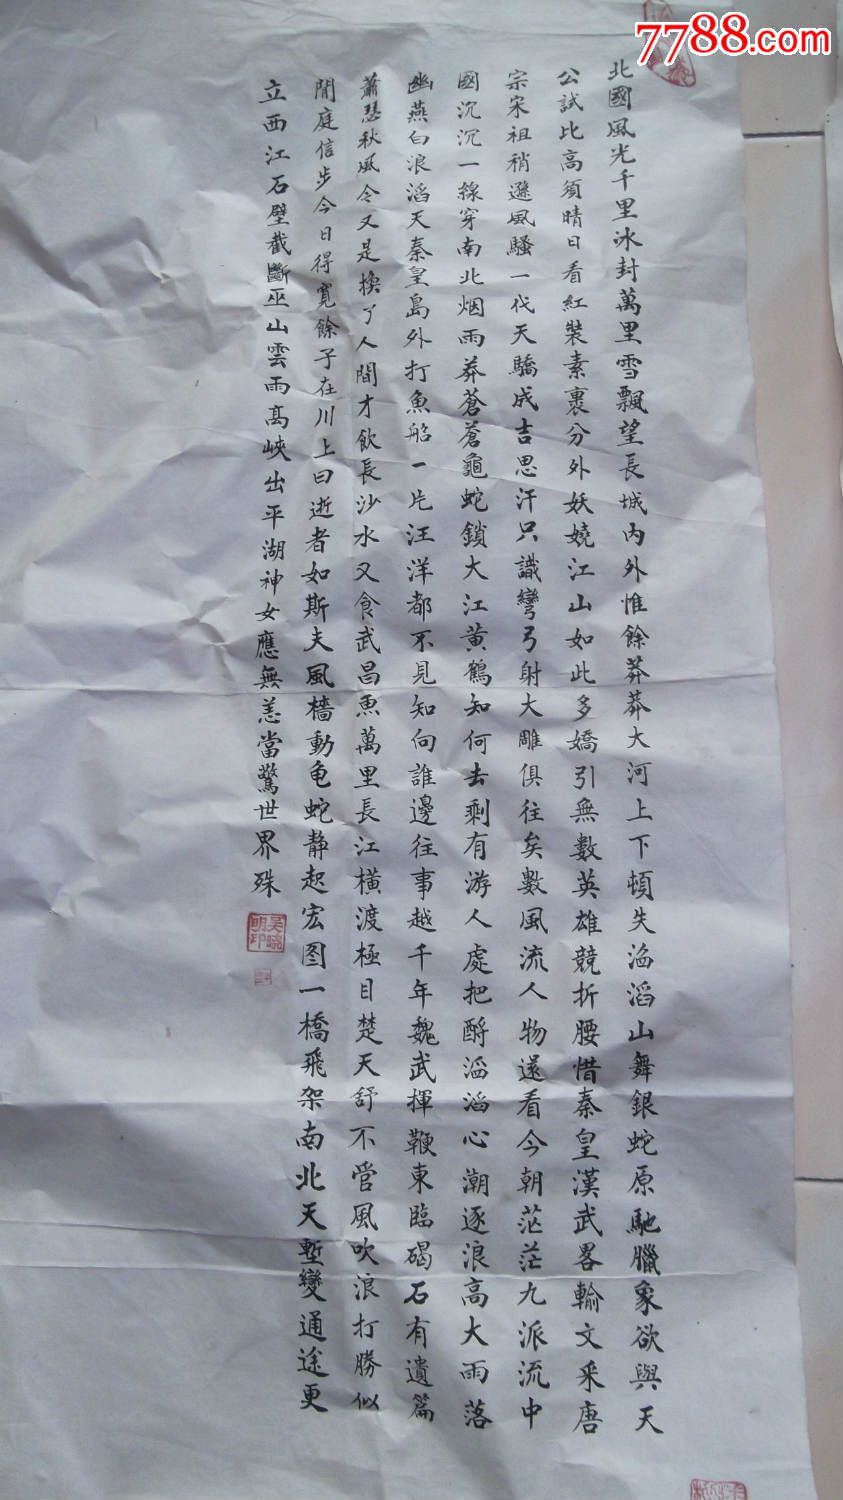 7788.com
北國風光千里冰封萬里雪飄望長城內外惟餘莽莽大河上下頓失滔滔山舞銀蛇原馳臘象欲與天
公試比高須晴日看紅裝素裹分外妖嬈江山如此多嬌引無數英雄競折腰惜秦皇漢武畧輸文采唐
宗宋祖稍遜風騷一代天驕成吉思汗只識彎弓射大雕俱往矣數風流人物還看今朝茫茫九派流中
國沉沉一線穿南北烟雨莽蒼蒼龜蛇鎖大江黃鶴知何去剩有游人處把酹滔滔心潮逐浪高大雨落
幽燕白浪滔天秦皇島外打魚船一片汪洋都不見知向誰邊往事越千年魏武揮鞭東臨碣石有遺篇
蕭瑟秋風今又是換了人間才飲長沙水又食武昌魚萬里長江橫渡極目楚天舒不管風吹浪打勝似
閒庭信步今日得寬餘子在川上曰逝者如斯夫風檣動龟蛇靜起宏图一橋飛架南北天塹變通途更
立西江石壁截斷巫山雲雨高峽出平湖神女應無恙當驚世界殊